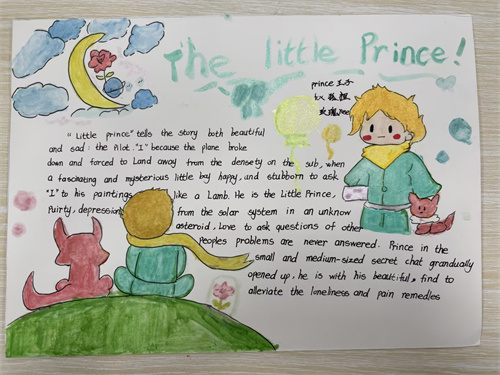 The little Prince!
prince 王子
fox 狐狸
玫瑰 Rose
"Little prince" tells the story both beautiful
and sad: the Pilot. "I" because the plane broke
down and forced to Land away from the density on the sub, when
a fascinating and mysterious little boy happy, and stubborn to ask
"I" to his paintings like a Lamb. He is the Little Prince,
Purity, depression from the solar system in an unknow
asteroid, Love to ask questions of other
Peoples problems are never answered. Prince in the
small and medium-sized secret chat grandually
opened up, he is with his beautiful, find to
alleviate the loneliness and pain remedles